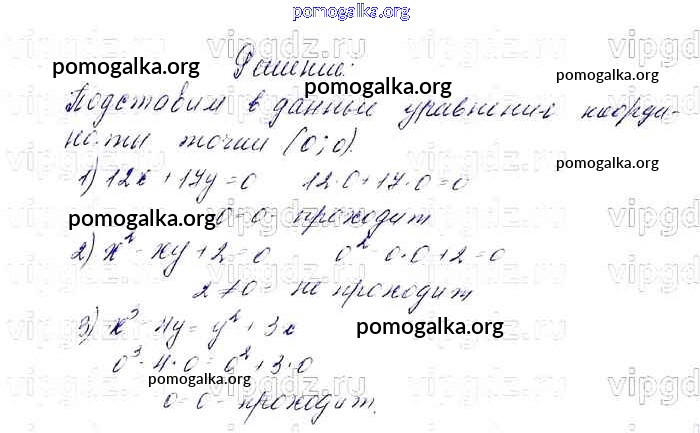 pomogalka.org
Решение:
pomogalka.org
pomogalka.org
pomogalka.org
Подставим в данные уравнения коорди-
наты точки (0;0).
pomogalka.org
1) 12x + 17y = 0 12·0 + 17·0 = 0
pomogalka.org
0 = 0 - проходит
2) x² - xy + 2 = 0 0² - 0·0 + 2 = 0
2 ≠ 0 - не проходит
3) x³ - 4y = y² + 3x
pomogalka.org
0³ - 4·0 = 0² + 3·0
pomogalka.org
0 = 0 - проходит.
vipgdz.ru